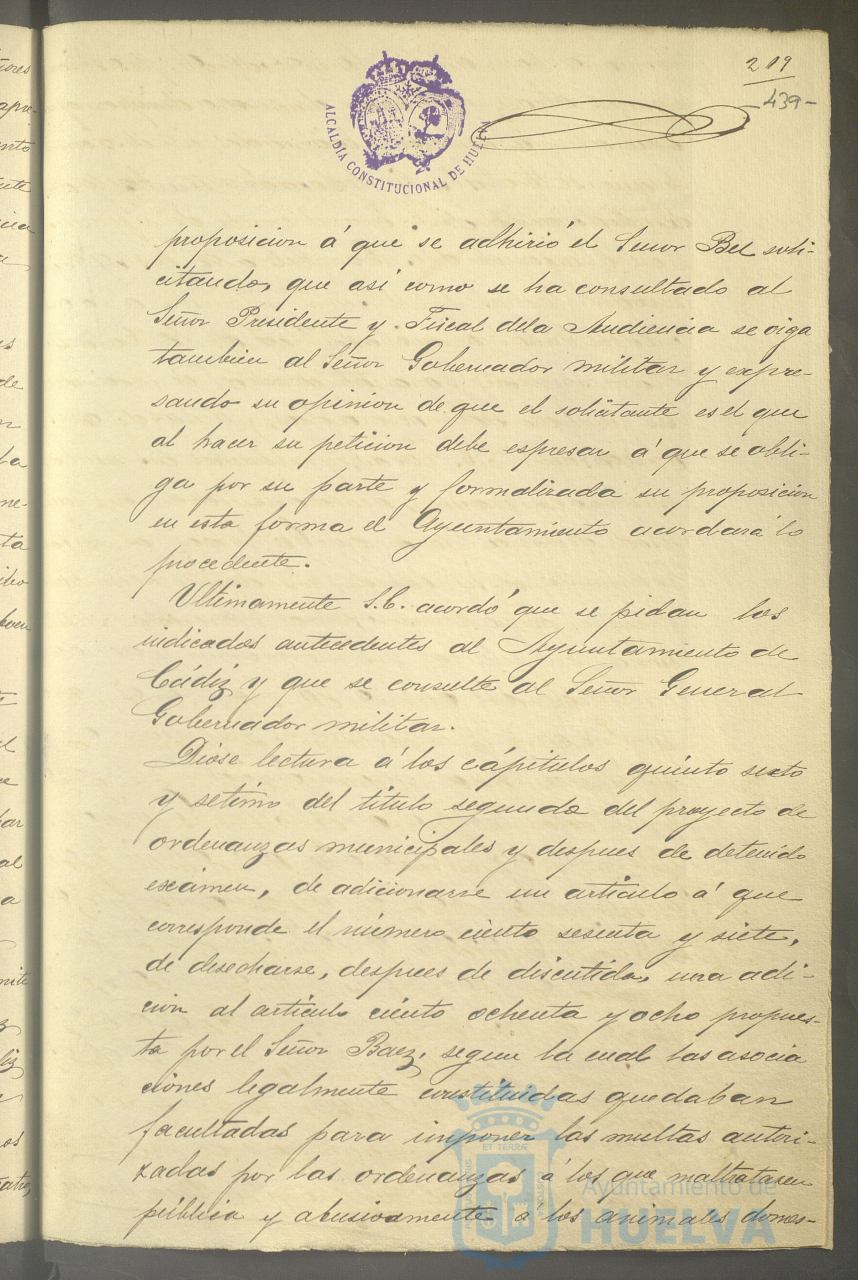 219
-439-
ALCALDÍA CONSTITUCIONAL DE HUELVA
proposicion á que se adhirió el Señor Bel soli-
citando, que así como se ha consultado al
Señor Presidente y Fiscal dela Audiencia se oiga
tambien al Señor Gobernador militar y expre-
sando su opinion de que el solicitante es el que
al hacer su peticion debe espresar á que se obli-
ga por su parte y formalizada su proposicion
en esta forma el Ayuntamiento acordará lo
procedente.
Ultimamente S.C. acordó que se pidan los
indicados antecedentes al Ayuntamiento de
Cádiz y que se consulte al Señor General
Gobernador militar.
Dióse lectura á los cápitulos quinto sexto
y setimo del titulo segundo del proyecto de
ordenanzas municipales y despues de detenido
exámen, de adicionarse un articulo á que
corresponde el número ciento sesenta y siete,
de desecharse, despues de discutida, una adi-
cion al articulo ciento ochenta y ocho propues-
ta por el Señor Baez, segun la cual las asocia
ciones legalmente constituidas quedaban
facultadas para imponer las multas autori-
zadas por las ordenanzas á los que maltratasen
pública y abusivamente á los animales domes-
ET TERRÆ
Ayuntamiento de
HUELVA